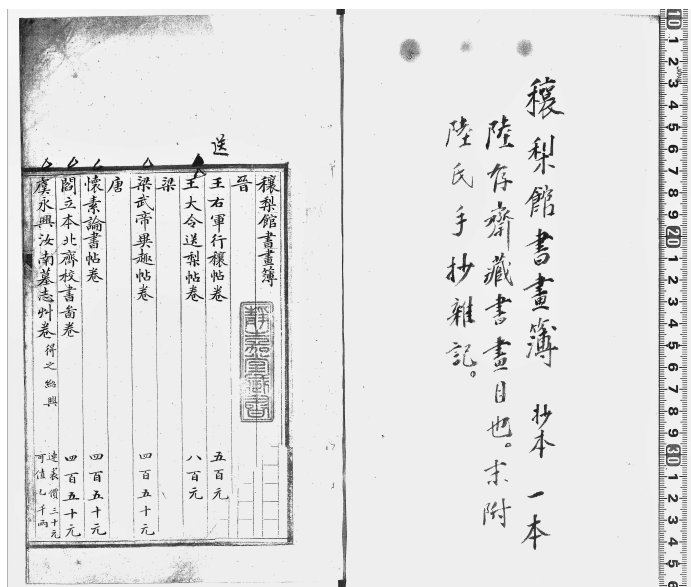 穰梨館書畫簿 抄本 一本
陸存齋藏書畫目也。末附
陸氏手抄雜記。
送
穰梨館書畫簿
靜嘉堂藏書
晉
王右軍行穰帖卷 五百元
王大令送梨帖卷 八百元
梁
梁武帝異趣帖卷 四百五十元
唐
懷素論書帖卷 四百五十元
閻立本北齊校書圖卷 四百五十元
虞永興汝南墓志艸卷 得之紹興 連裘價三十元 可值乙千兩
10 1 2 3 4 5 6 7 8 9 20 1 2 3 4 5 6 7 8 9 30 1 2 3 4 5 6